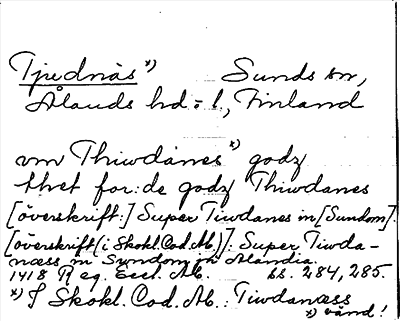 Tjudnäs x) Sunds sn,
Ålands hd o. l., Finland
vm Thiwdånes x) godz
thet for:de godz Thiwdanes
[överskrift:] Super Tiwdanes in [Sundom].
[överskrift (i Skokl. Cod. Ab.)]: Super Tiwda-
næss in Sundom in Alandia.
1418 Reg. Eccl. Ab. bl. 284, 285.
x) I Skokl. Cod. Ab.: Tiwdanæss
x) vänd!